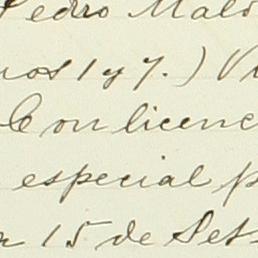 Pedro Mald
nos 1 y 7.) V
Con licenc
especial p
15 de Set